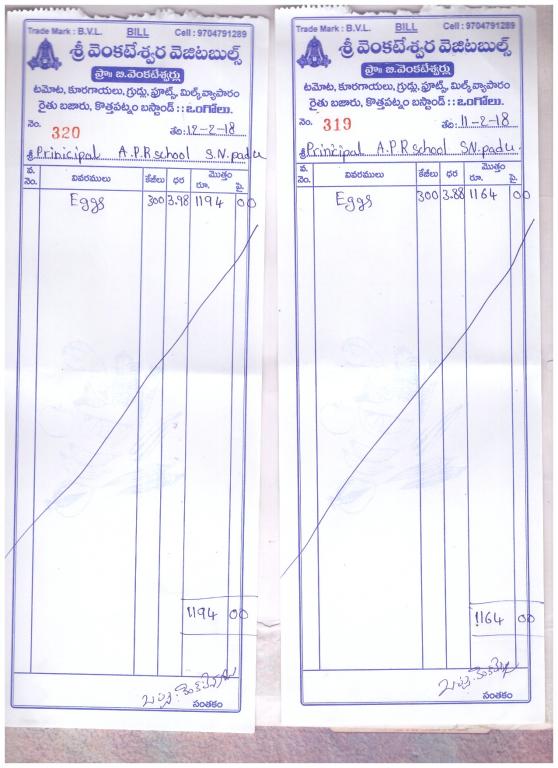 Trade Mark : B.V.L. BILL Cell : 9704791289
శ్రీ వెంకటేశ్వర వెజిటబుల్స్
ప్రొః బి.వెంకటేశ్వర్లు
టమోట, కూరగాయలు, గ్రుడ్లు, ఫ్రూట్స్, మిల్క్ వ్యాపారం
రైతు బజారు, కొత్తపట్నం బస్టాండ్ :: ఒంగోలు.
నెం. 320 తేది: 12-2-18
శ్రీ Prinicipal A.P.R school S.N.padu
వ. నెం. వివరములు కేజీలు ధర మొత్తం రూ. పై.
Eggs 300 3.98 1194 00
1194 00
సంతకం
Trade Mark : B.V.L. BILL Cell : 9704791289
శ్రీ వెంకటేశ్వర వెజిటబుల్స్
ప్రొః బి.వెంకటేశ్వర్లు
టమోట, కూరగాయలు, గ్రుడ్లు, ఫ్రూట్స్, మిల్క్ వ్యాపారం
రైతు బజారు, కొత్తపట్నం బస్టాండ్ :: ఒంగోలు.
నెం. 319 తేది: 11-2-18
శ్రీ Prinicipal A.P.R school S.N.padu.
వ. నెం. వివరములు కేజీలు ధర మొత్తం రూ. పై.
Eggs 300 3.88 1164 00
1164 00
సంతకం